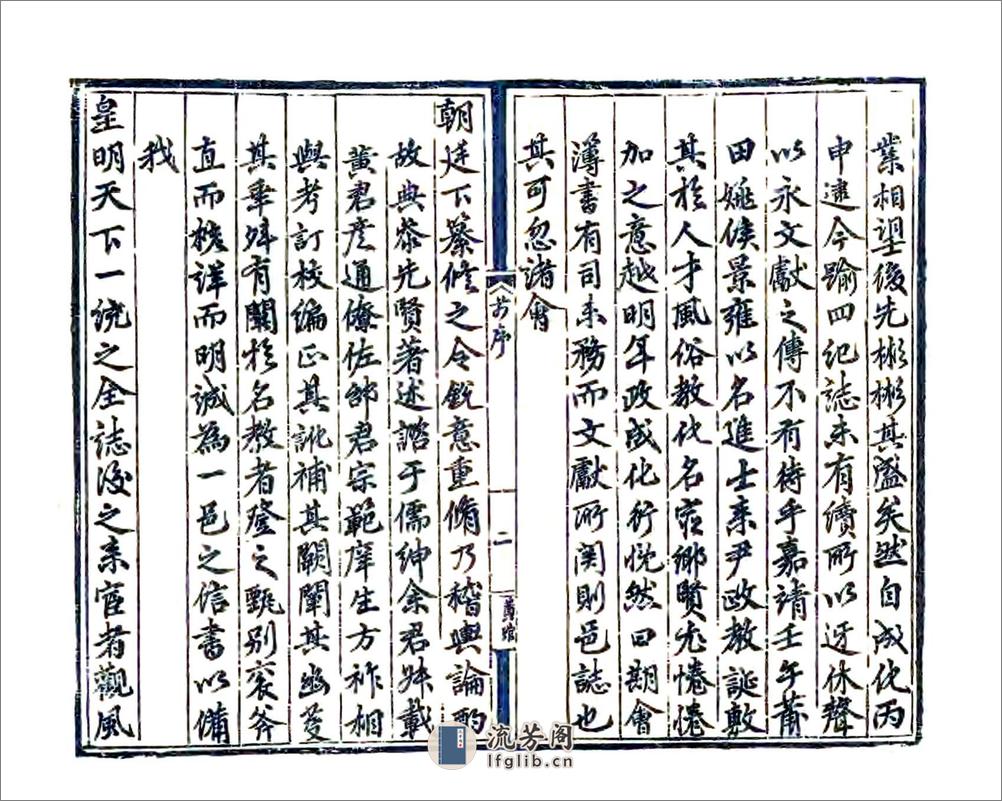 業相望後先彬彬其盛矣然自成化丙
申逮今踰四紀誌未有續所以迓休聲
以永文獻之傳不有待乎嘉靖壬午莆
田姚侯景雍以名進士来尹政教誕敷
其於人才風俗教化名宦鄉賢尤惓惓
加之意越明年政成化行恱然曰期會
簿書有司末務而文獻所関則邑誌也
其可忽諸會
前序
二
朝廷下纂修之令銳意重脩乃稽輿論酌
故典參先賢著述諮于儒紳余君載
黄君彦通僚佐邵君宗範庠生方祚相
與考訂校編正其訛補其闕闡其幽發
其事殊有關於名教者登之甄别衮斧
直而核詳而明誠為一邑之信書以備
我
皇明天下一統之全誌後之来宦者觀風
流芳阁
lfglib.cn